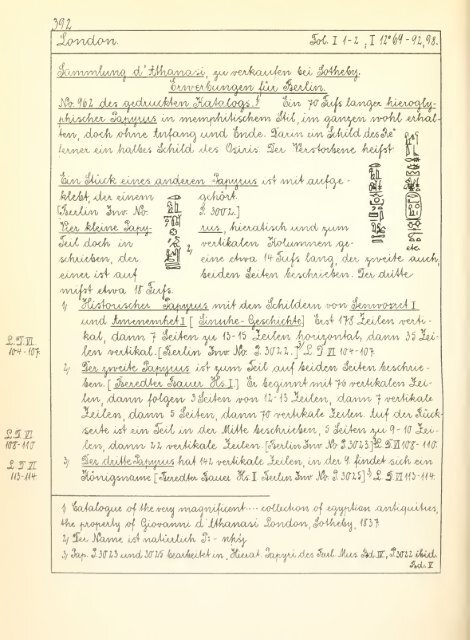 392
London.
Fol. I 1-2, I 12°64-92,98.
Sammlung d'Athanasi, zu verkaufen bei Sotheby.
Erwerbungen für Berlin.
No. 962 des gedruckten Katalogs.¹⁾ Ein 70 Fuss langer hierogly-
phischer Papyrus in memphitischem Stil, im ganzen wohl erhal-
ten, doch ohne Anfang und Ende. Darin ein Schild des
ferner ein halbes Schild des Osiris. Der Verstorbene heisst
etc.
Ein Stück eines anderen Papyrus ist mit aufge-
klebt, der einem gehört.
[Berlin Inv. No. P. 3002.]
Vier kleine Papyrus, hieratisch und zum
Teil doch in 2) vertikalen Kolumnen ge-
schrieben, der eine etwa 14 Fuss lang, der zweite auch,
einer ist auf beiden Seiten beschrieben. Der dritte
misst etwa 18 Fuss.
1) Historischer Papyrus mit den Schildern von Senwosret I
und Amenemhet I [Sinuhe-Geschichte] Erst 178 Zeilen verti-
kal, dann 7 Seiten zu 13-15 Zeilen horizontal, dann 35 Zei-
len vertikal. [Berlin Inv No. P. 3022.]³⁾ L D VI 104-107
L D VI
104-107.
2) Der zweite Papyrus ist zum Teil auf beiden Seiten beschrie-
ben. [Beredter Bauer Hs. I.] Er beginnt mit 76 vertikalen Zei-
len, dann folgen 3 Seiten von 12-13 Zeilen, dann 7 vertikale
Zeilen, dann 5 Seiten, dann 70 vertikale Zeilen. Auf der Rück-
seite ist ein Teil in der Mitte beschrieben, 5 Seiten zu 9-10 Zei-
len, dann 22 vertikale Zeilen. [Berlin Inv No P. 3023]³⁾ L D VI 108-110.
L D VI
108-110
3) Der dritte Papyrus hat 142 vertikale Zeilen, in der 4 findet sich ein
Königsname [Beredter Bauer Hs. II Berlin Inv No P. 3025]³⁾ L D VI 113-114.
L D VI
113-114
1) Catalogue of the very magnificent.... collection of egyptian antiquities,
the property of Giovanni d'Athanasi London, Sotheby, 1837
2) Der Name ist natürlich
3) Pap. P. 3023 und 3025 bearbeitet in, Hierat. Papyri des Berl. Mus. Bd. IV, P. 3022 ibid.
Bd. V.